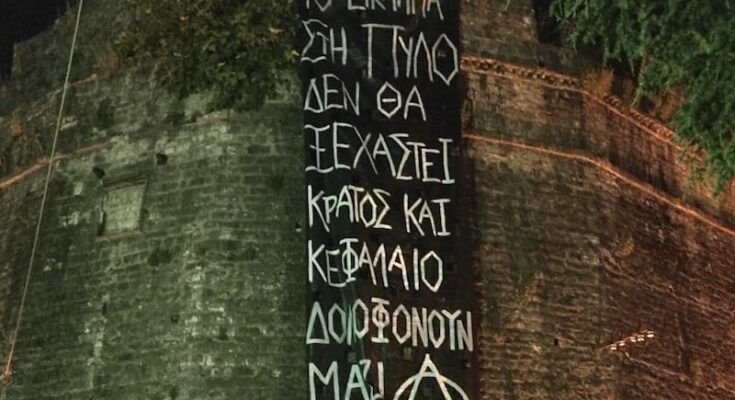 ΣΤΗ ΠΥΛΟ
ΔΕΝ ΘΑ
ΞΕΧΑΣΤΕΙ
ΚΡΑΤΟΣ ΚΑΙ
ΚΕΦΑΛΑΙΟ
ΔΟΛΟΦΟΝΟΥΝ
ΜΑΖΙ